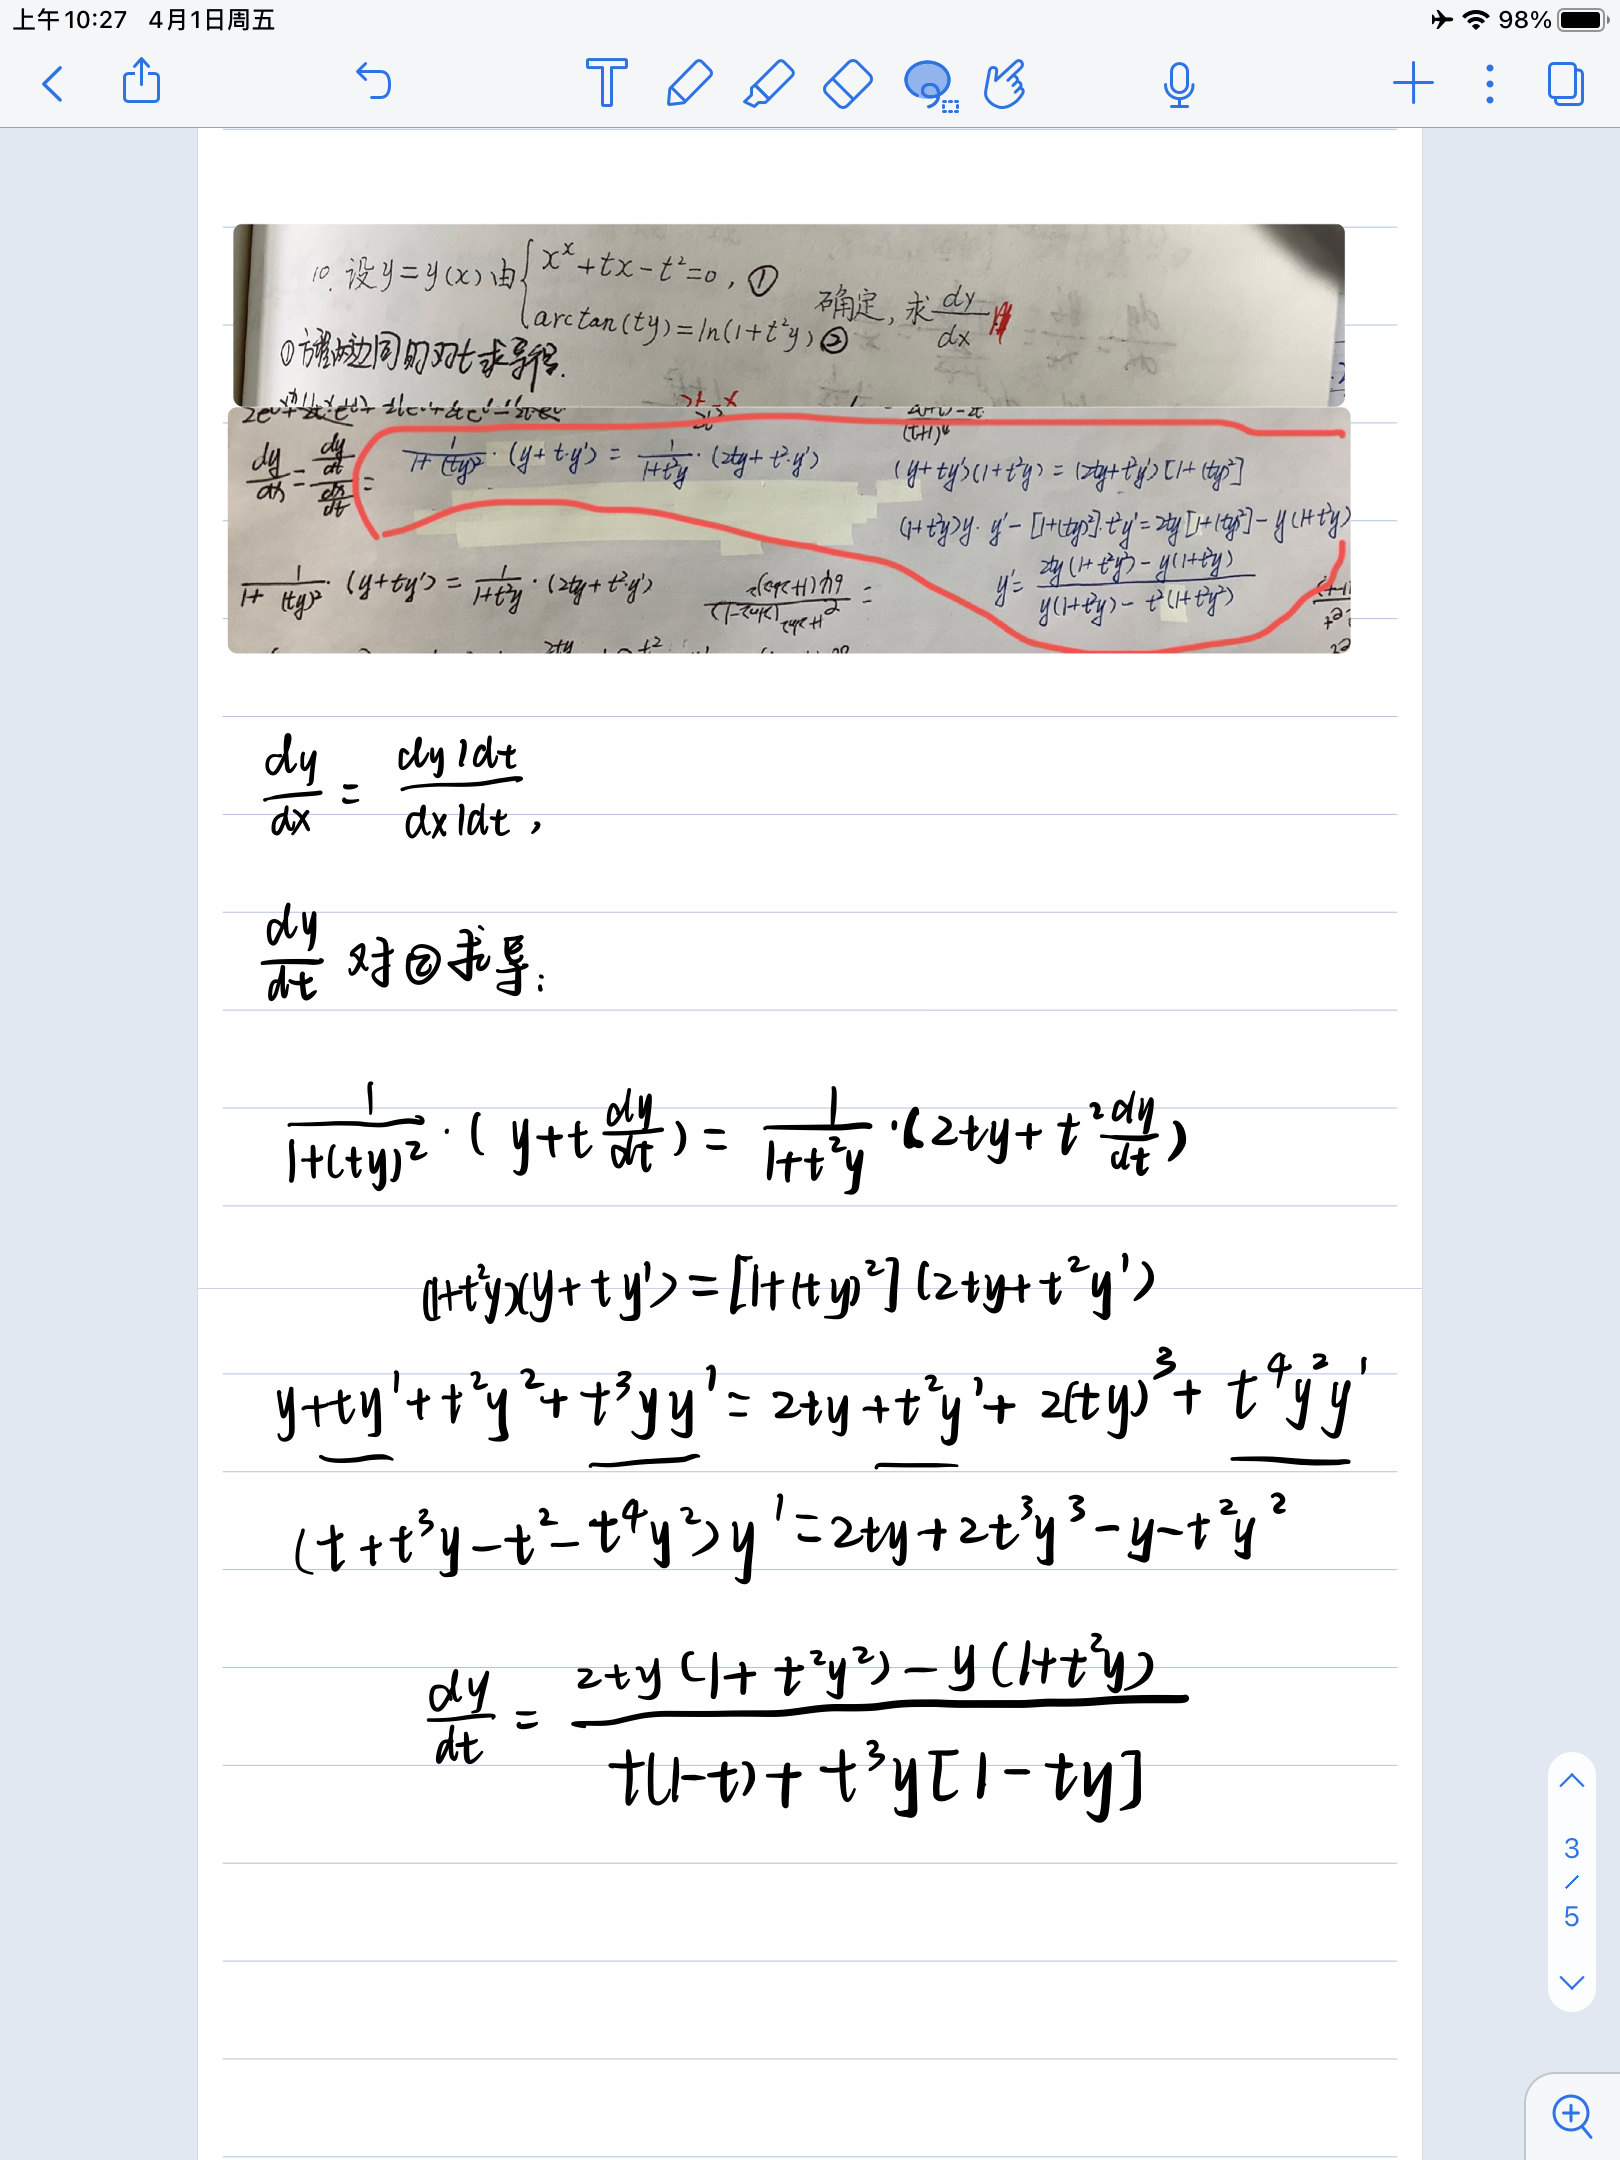 上午10:27 4月1日周五 98%
10. 设y=y(x)由{x^x+tx-t²=0, ①
arctan(ty)=ln(1+t²y) ② 确定, 求dy/dx
①方程两边同时对t求导得.
dy/dx = (dy/dt)/(dx/dt) =
1/(1+(ty)²)·(y+t·y') = 1/(1+t²y)·(2ty+t²·y')
(y+ty')(1+t²y) = (2ty+t²y')[1+(ty)²]
(1+t²y)y·y'-[1+(ty)²]·t²y'=2ty[1+(ty)²]-y(1+t²y)
y'= (2ty(1+t²y²)-y(1+t²y))/(y(1+t²y)-t²(1+t²y²))
1/(1+(ty)²)·(y+ty') = 1/(1+t²y)·(2ty+t²·y')
dy/dx = (dy/dt)/(dx/dt),
dy/dt 对②求导:
1/(1+(ty)²)·(y+t dy/dt) = 1/(1+t²y)·(2ty+t² dy/dt)
(1+t²y)(y+ty')=[1+(ty)²](2ty+t²y')
y+ty'+t²y²+t³yy'=2ty+t²y'+2(ty)³+t⁴y²y'
(t+t³y-t²-t⁴y²)y'=2ty+2t³y³-y-t²y²
dy/dt = (2ty(1+t²y²)-y(1+t²y))/(t(1-t)+t³y[1-ty])
3
/
5